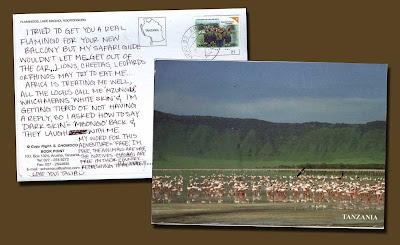 FLAMINGOS, LAKE MAGADI, NGORONGORO
I TRIED TO GET YOU A REAL
FLAMINGO FOR YOUR NEW
BALCONY BUT MY SAFARI GUIDE
WOULDN'T LET ME GET OUT OF
THE CAR... LIONS, CHEETAS, LEOPARDS
OR RHINOS MAY TRY TO EAT ME...
AFRICA IS TREATING ME WELL,
ALL THE LOCALS CALL ME 'MZUNGU'
WHICH MEANS 'WHITE SKIN' & I'M
GETTING TIRED OF NOT HAVING
A REPLY, SO I ASKED HOW TO SAY
'DARK SKIN' = 'MBONGO' BACK &
THEY LAUGH WITH ME
MY WORD FOR THIS
ADVENTURE= 'FREE', I'M
FREE, THE ANIMALS ARE
THE NATIVES
FREE IN THEIR COUNTRY
REFRESHING
LOVE YOU!
© Copy Right & ©
BOOK POINT
Arusha, Tanzania
TANZANIA
TANZANIA